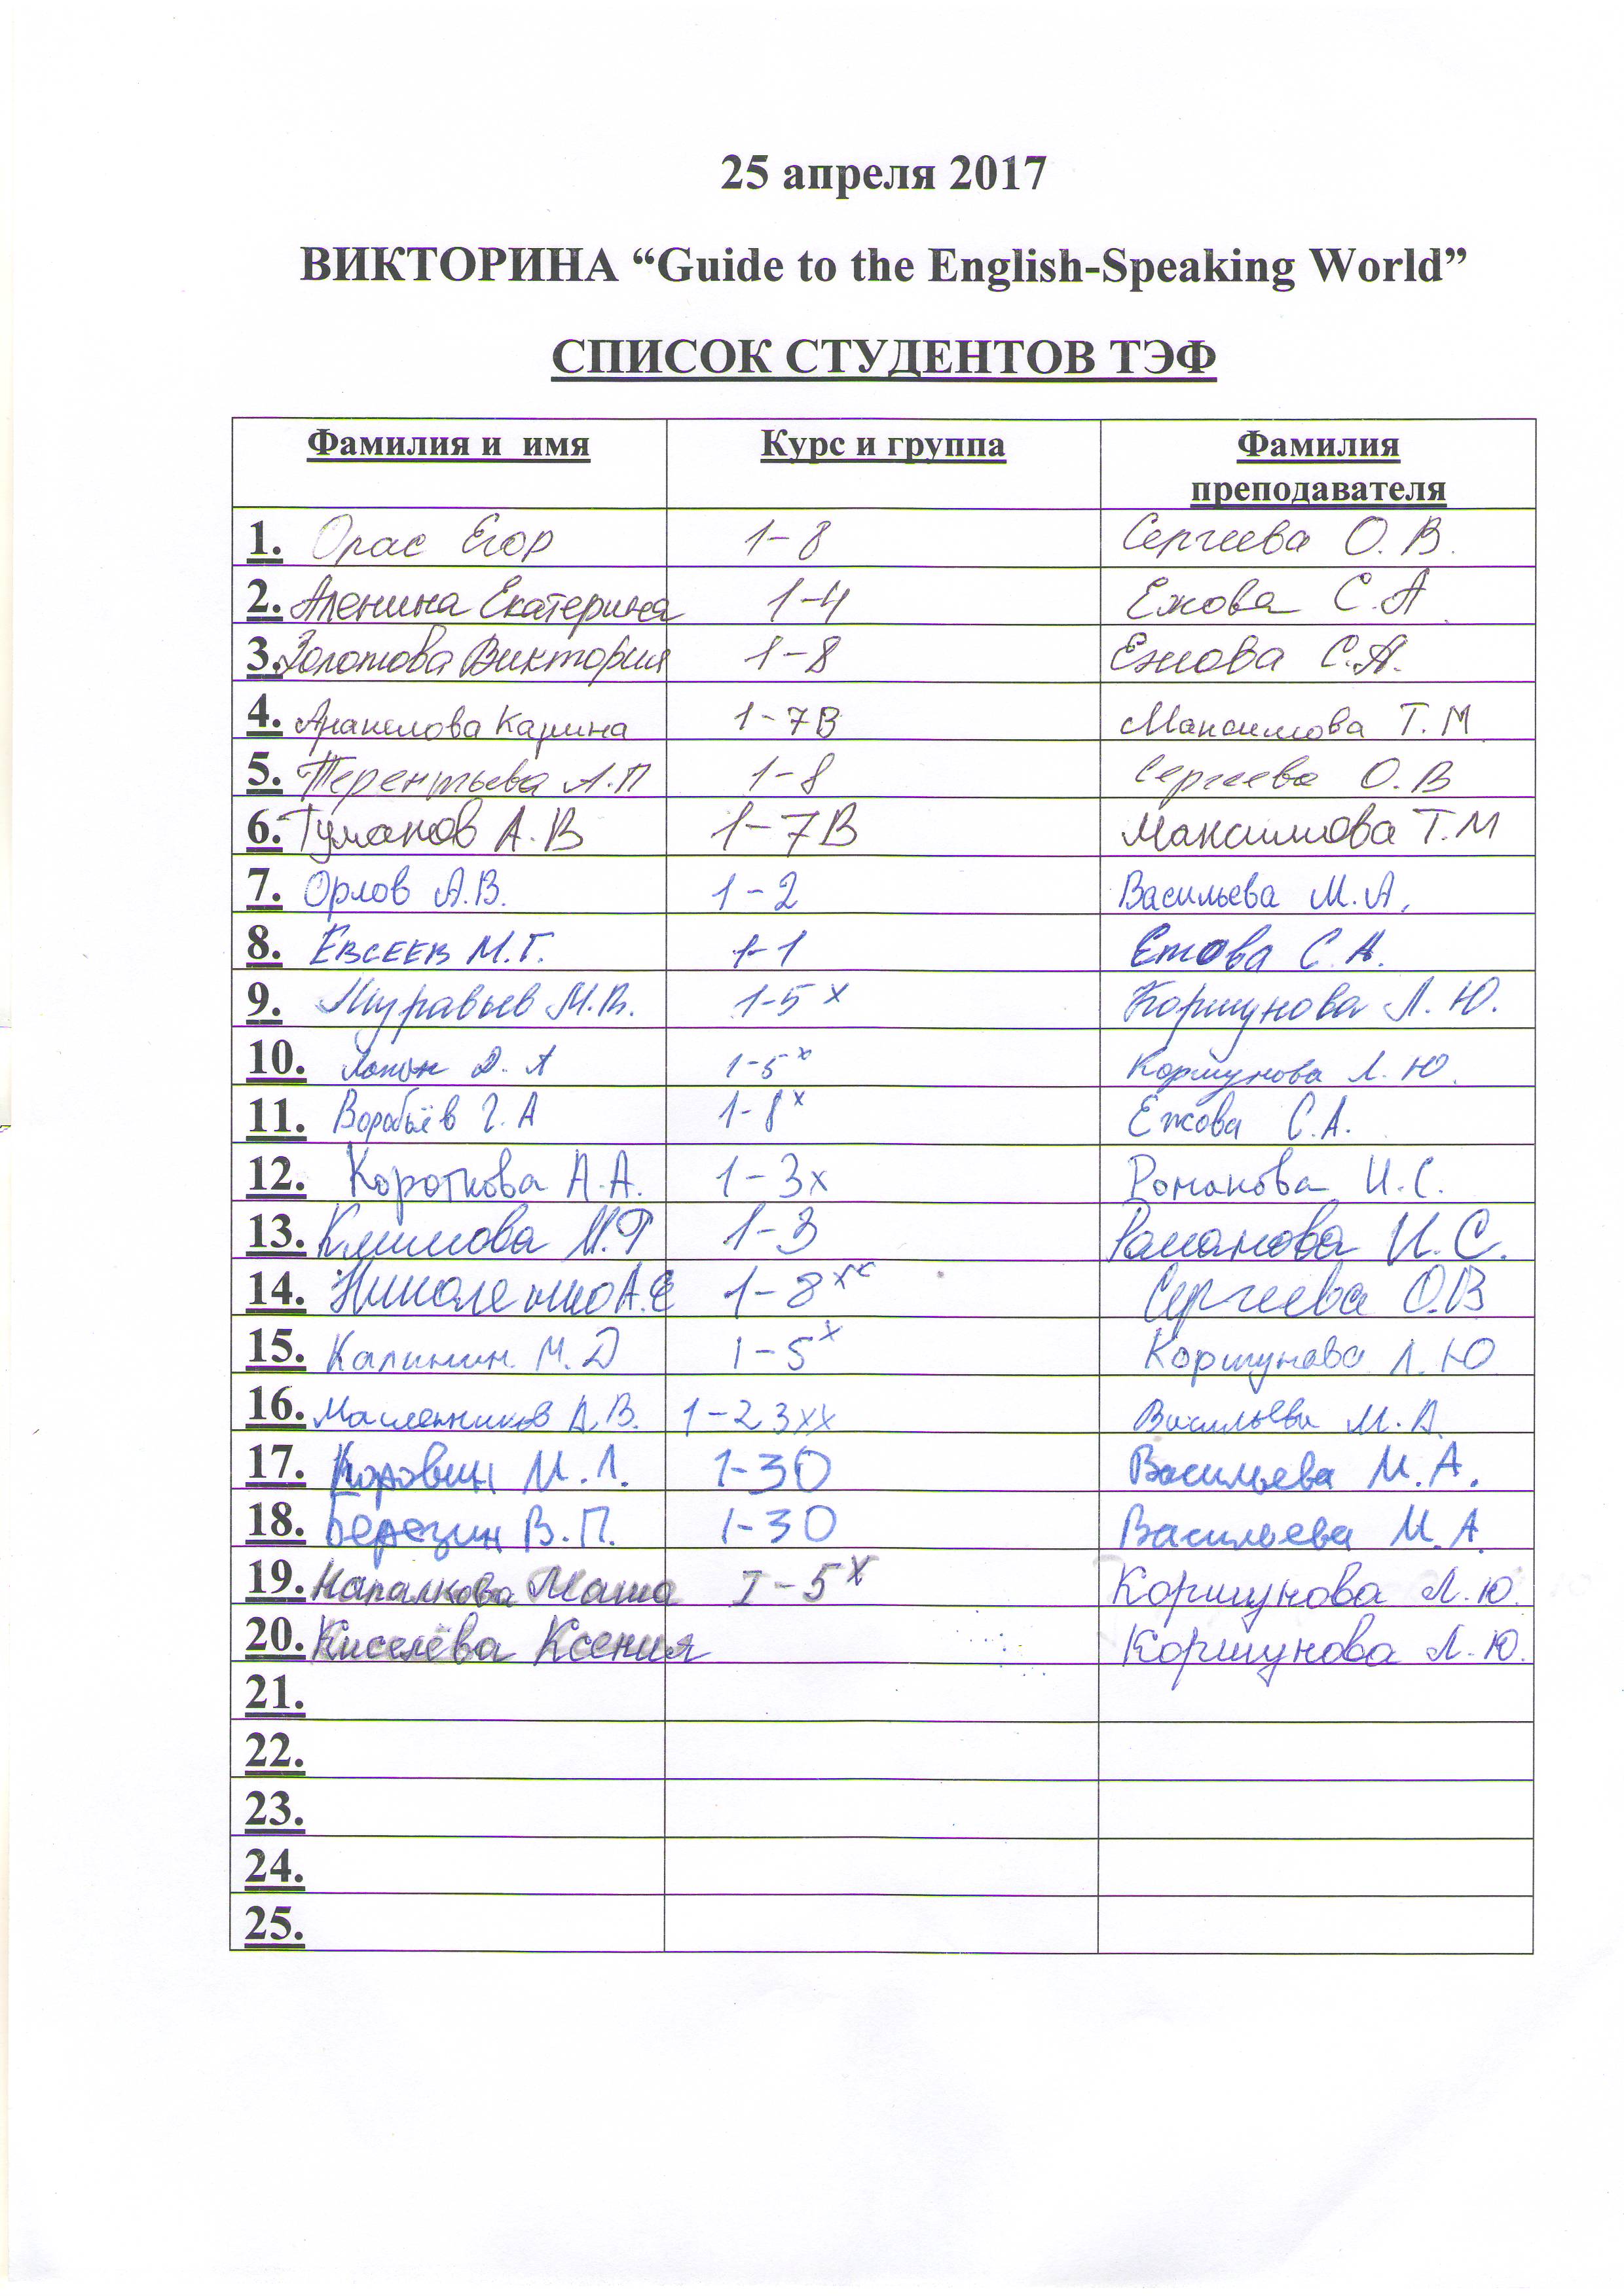 25 апреля 2017
ВИКТОРИНА “Guide to the English-Speaking World”
СПИСОК СТУДЕНТОВ ТЭФ
Фамилия и имя Курс и группа Фамилия преподавателя
1. Орас Егор 1-8 Сергеева О.В.
2. Аленина Екатерина 1-4 Ежова С.А
3. Золотова Виктория 1-8 Ежова С.А.
4. Аракелова Карина 1-7В Максимова Т.М
5. Терентьева А.П 1-8 Сергеева О.В
6. Туманов А.В 1-7В Максимова Т.М
7. Орлов А.В. 1-2 Васильева М.А.
8. Евсеев М.Г. 1-1 Ежова С.А.
9. Муравьев М.В. 1-5х Коршунова Л.Ю.
10. Д.А 1-5х Коршунова Л.Ю.
11. Воробьёв Г.А 1-8х Ежова С.А.
12. Короткова А.А. 1-3х Романова И.С.
13. Климова М.Г 1-3 Романова И.С.
14. А.Е 1-8хх Сергеева О.В
15. Калинин М.Д 1-5х Коршунова Л.Ю
16. Масленников А.В. 1-23хх Васильева М.А.
17. Коровин М.Л. 1-30 Васильева М.А.
18. Березин В.П. 1-30 Васильева М.А.
19. Напалкова Маша I-5х Коршунова Л.Ю.
20. Киселёва Ксения Коршунова Л.Ю.
21.
22.
23.
24.
25.